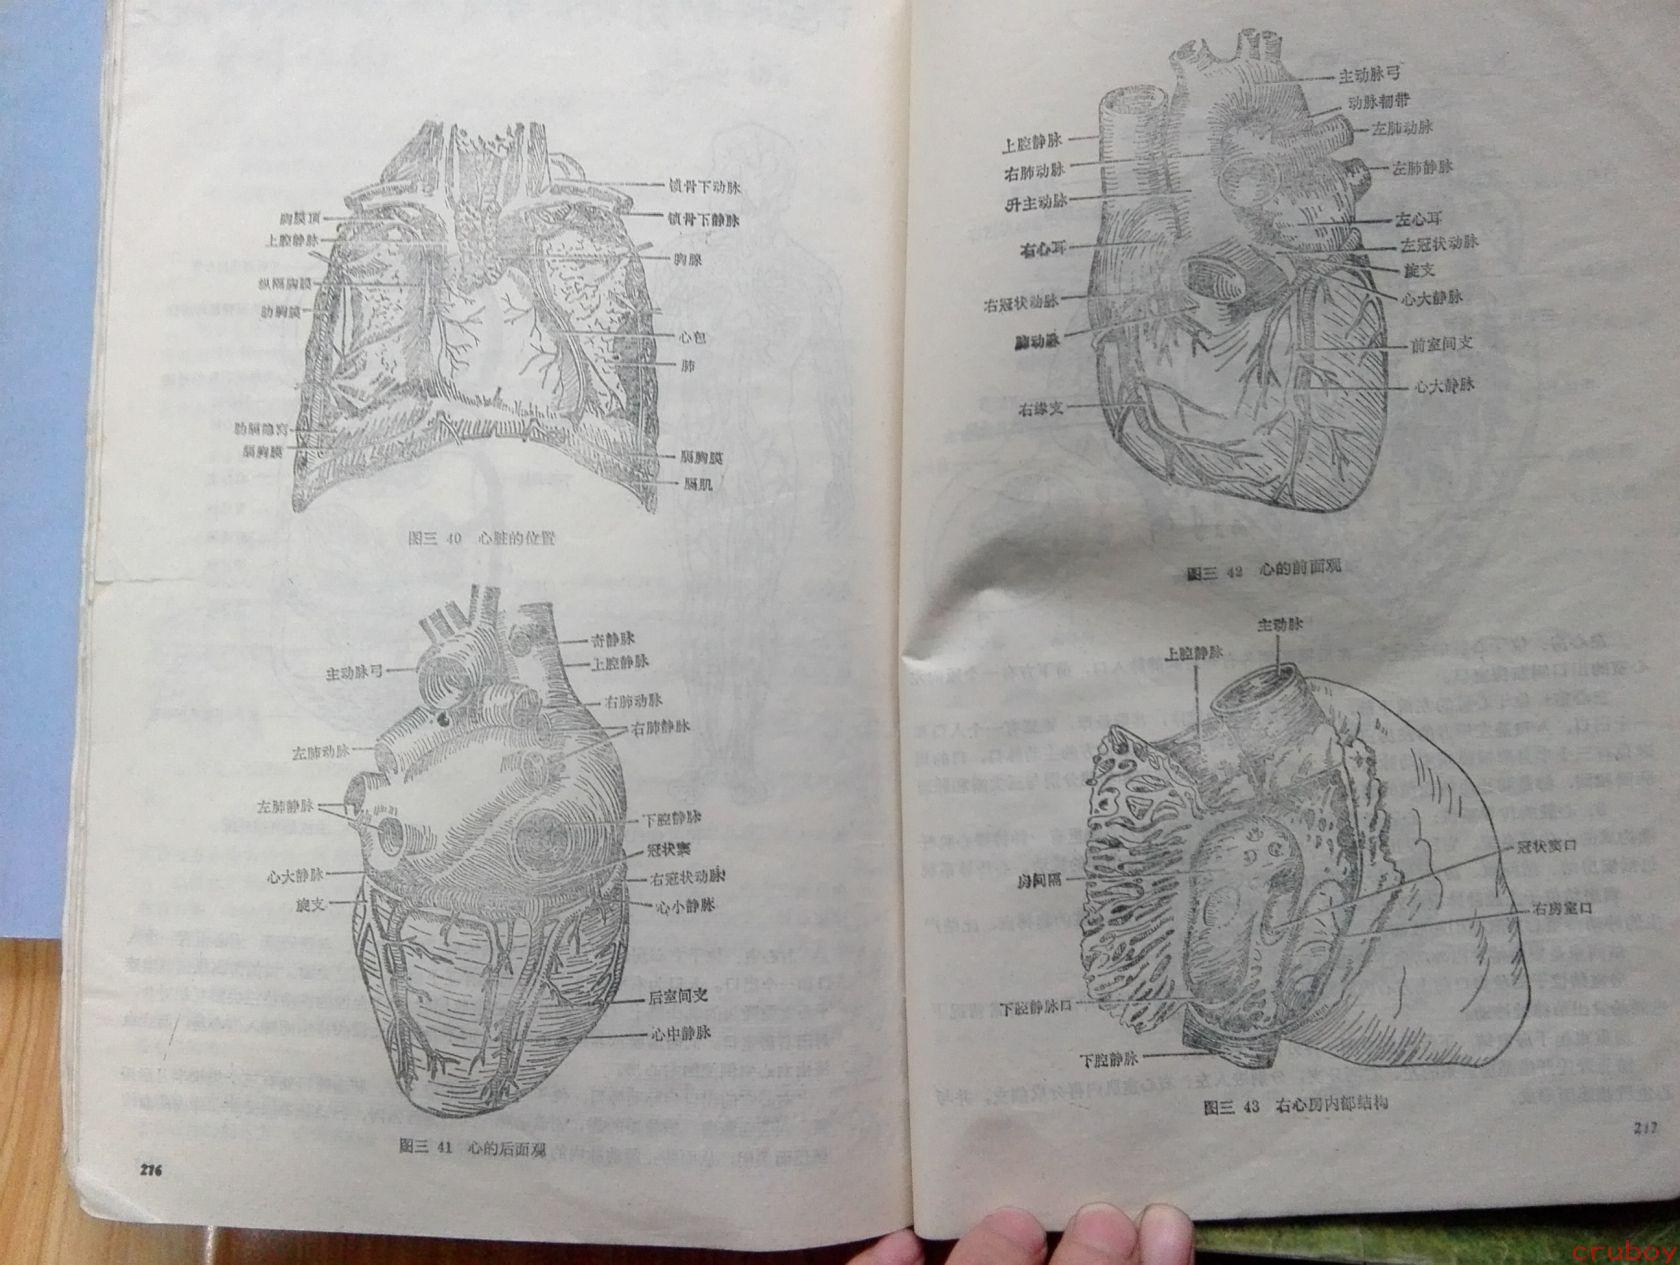 锁骨下动脉
锁骨下静脉
胸膜顶
上腔静脉
胸腺
纵隔胸膜
肋胸膜
心包
肺
肋膈隐窝
膈胸膜
膈胸膜
膈肌
图三 40 心脏的位置
奇静脉
上腔静脉
主动脉弓
右肺动脉
右肺静脉
左肺动脉
左肺静脉
下腔静脉
冠状窦
心大静脉
右冠状动脉
旋支
心小静脉
后室间支
心中静脉
图三 41 心的后面观
216
主动脉弓
动脉韧带
左肺动脉
上腔静脉
左肺静脉
右肺动脉
升主动脉
左心耳
右心耳
左冠状动脉
旋支
右冠状动脉
心大静脉
肺动脉
前室间支
心大静脉
右缘支
图三 42 心的前面观
主动脉
上腔静脉
冠状窦口
房间隔
右房室口
下腔静脉口
下腔静脉
图三 43 右心房内部结构
217
cruboy